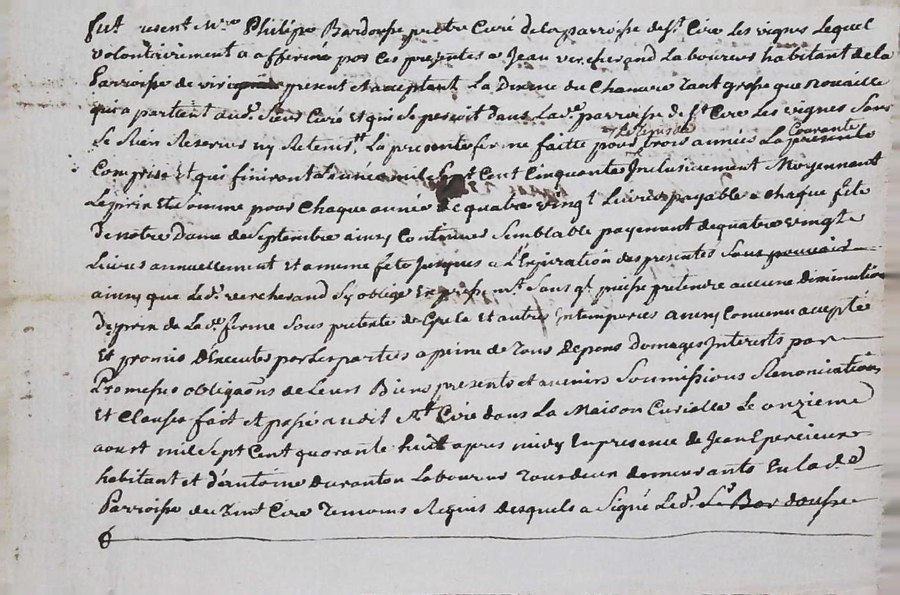 fut present Mre Philipe Bardousse pretre Curé de la parroisse de St Cire Les vignes Lequel
volontairement a afferme par Ces presentes a Jean vercherand Laboureur habitant de la
Parroisse de present et acceptant La Dixme du Chanvre tant grosse que
qui apartient aud. Sieur Curé et qui se percoit dans Lad. parroisse de St Cire Les vignes Sans
Le Rien Reserver ny Retenir La presente ferme faitte pour trois années La presente
Courante
Comprise Et qui finiront L'année mil Sept Cent Cinquante Inclusivement Moyennant
Le prix Et Somme pour Chaque année de quatre vingt Livres payable a Chaque fête
de notre Dame de Septembre ainsy Continuer Semblable payement de quatre vingt
Livres annuellement Et a meme fête Jusques a L'Expiration des presentes
ainsy que Led. vercherand Sy oblige Expressemt. Sans ql. puisse pretendre aucune diminution
de prix de La de. ferme Sous pretexte de Grele Et autres Intemperies ainsy Convenu accepté
Et promis D'Executer par Les parties a peine de tous Depens Domages Interests par
Promesses obligaõns de Leurs Biens presents et avenirs Soumissions Renonciations
Et Clauses fait et passé audit St. Cire dans La Maison Curialle Le onzieme
aoust mil Sept Cent quarante huit apres midy En presence de Jean
habitant et d'antoine Duranton Laboureur tous deux demeurants En lad.
Parroisse de Saint Cire temoins Requis Desquels a Signé Led. Sr. Bardousse